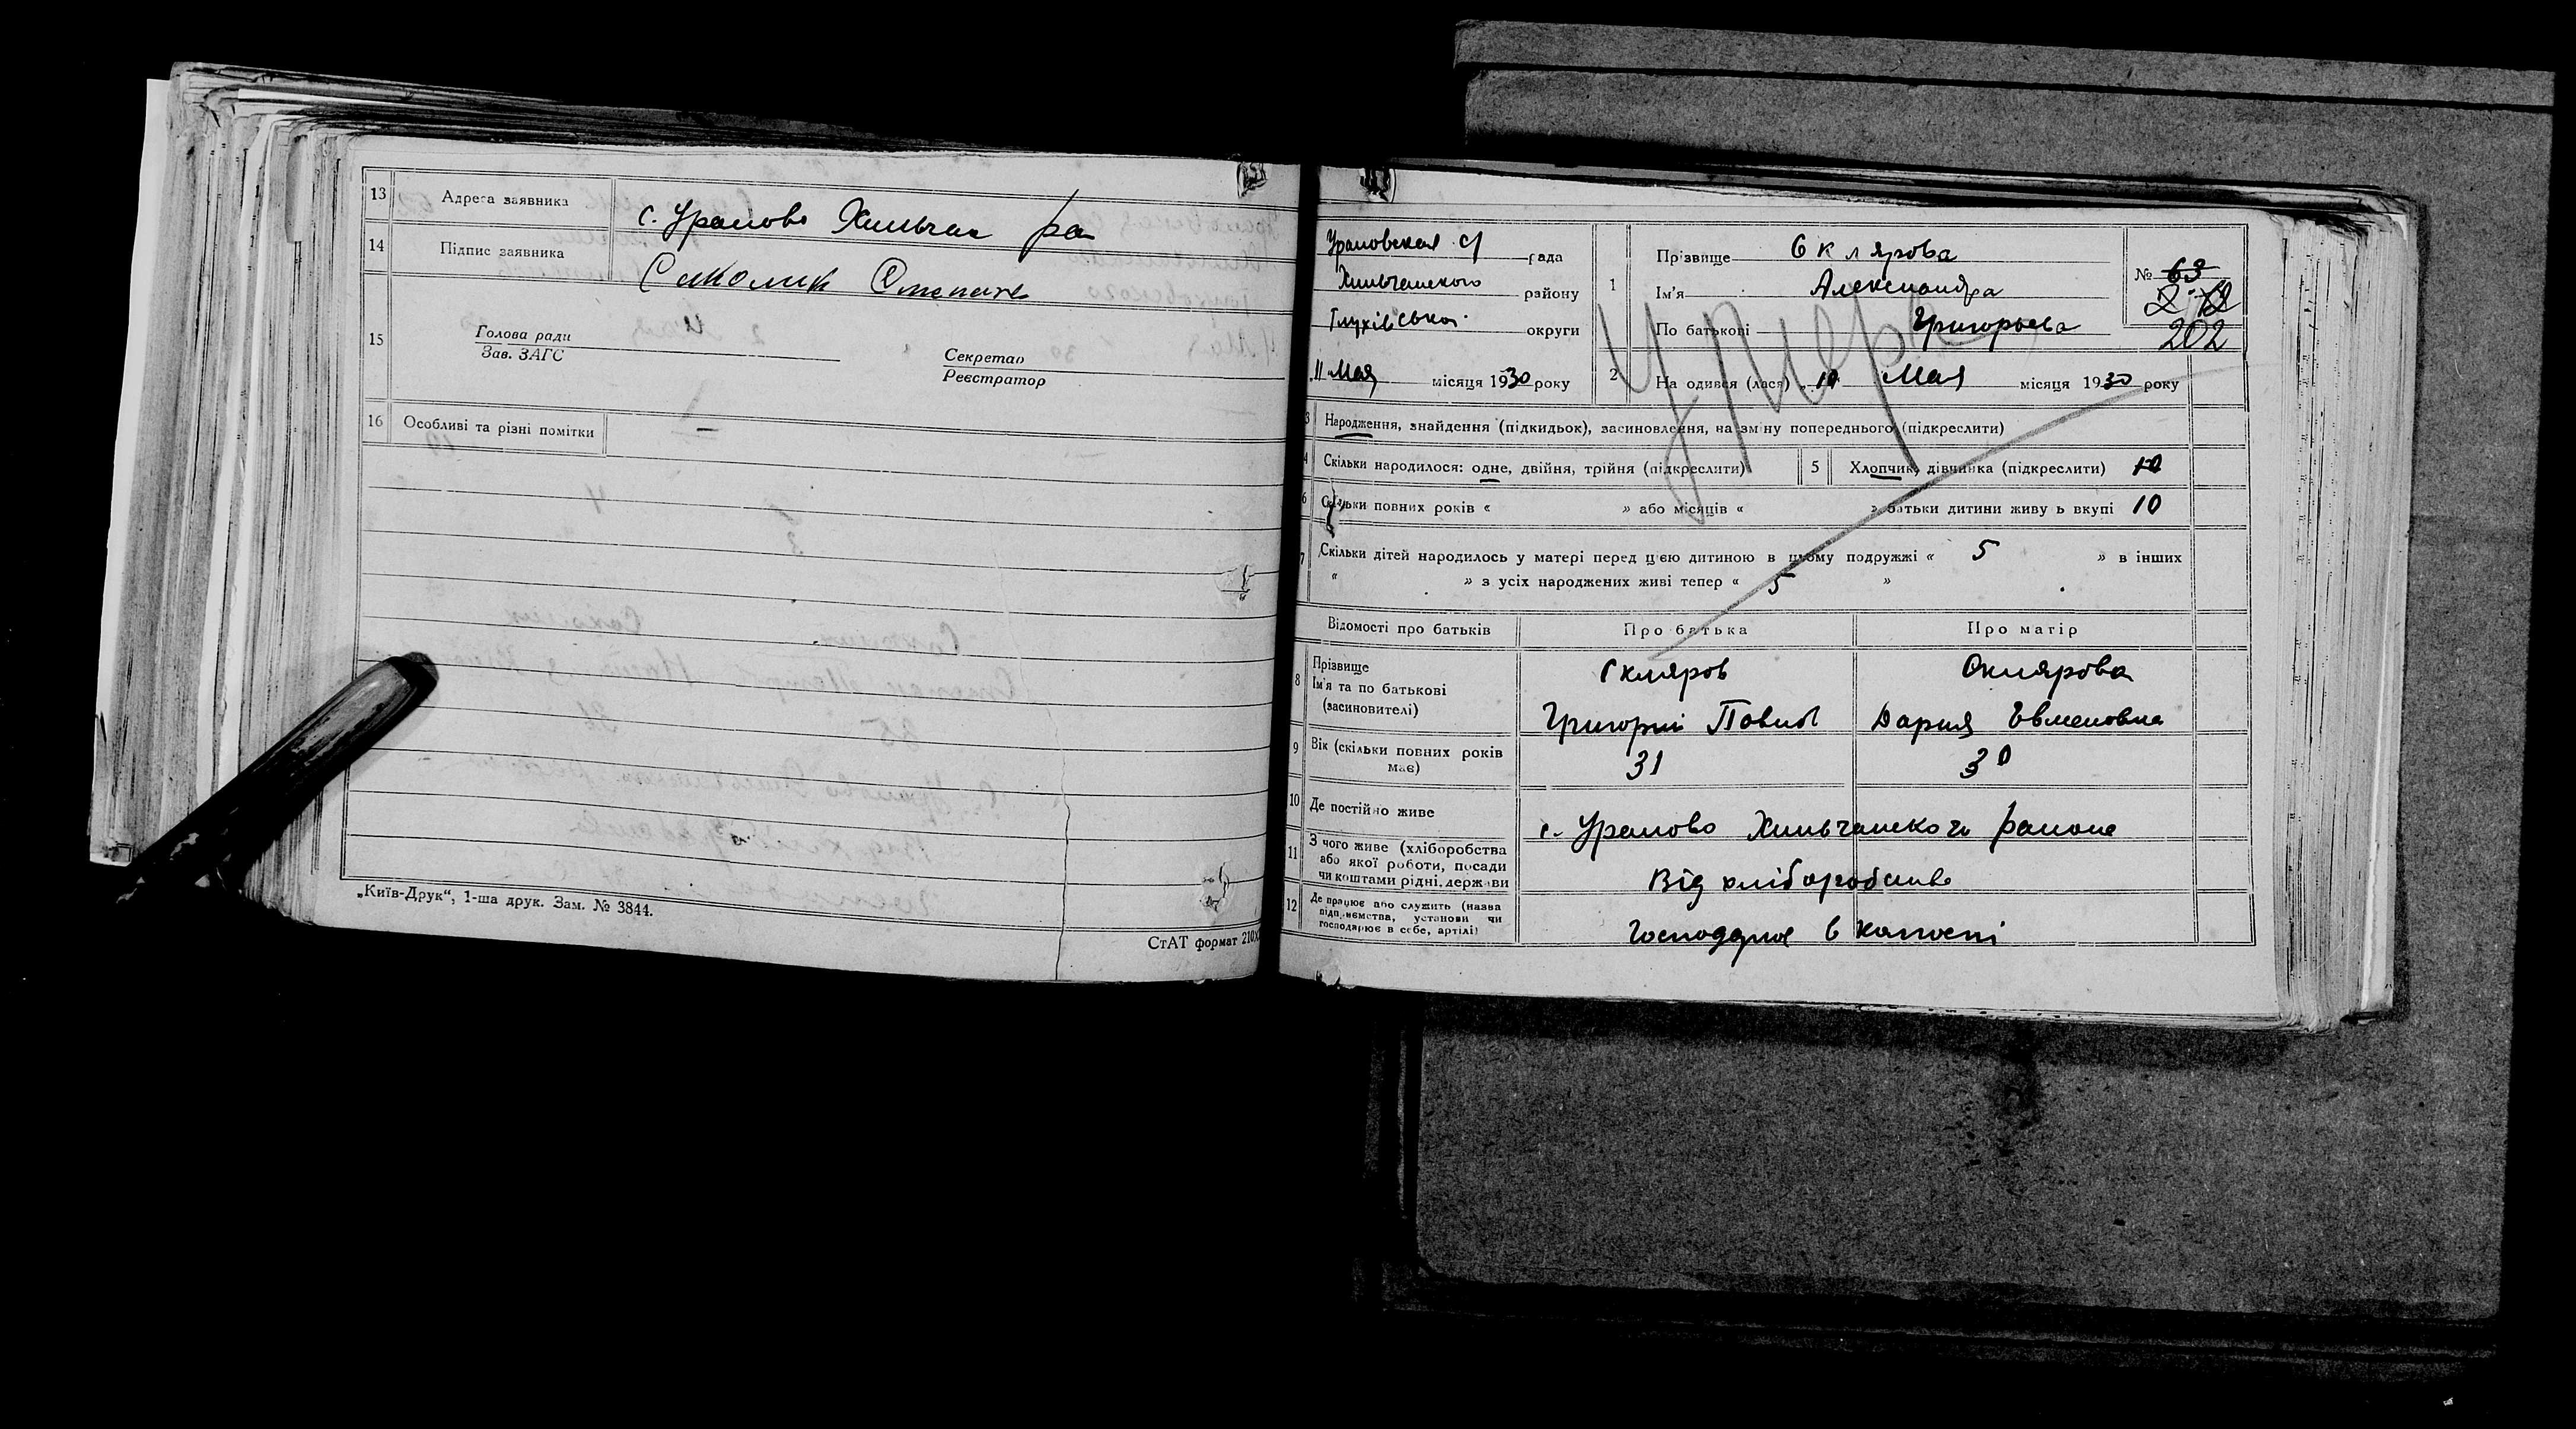 13 Адреса заявника с. Уралово Хильчан ра
14 Підпис заявника Саколик Степан
15 Голова ради
Зав. ЗАГС
Секретар
Реєстратор
16 Особливі та різні помітки —
„Київ-Друк“, 1-ша друк. Зам. № 3844.
СтАТ формат 210х
Ураловская с/ рада
Хильчанского району
Глухівська округи
„11 Мая місяця 1930 року
1 Прізвище Склярова
Ім'я Александра
По батькові Григорьева
№ 63
202
умер
2 На одився (лася) „10 Мая місяця 1930 року
3 Народження, знайдення (підкидьок), засиновлення, на зміну попереднього (підкреслити)
4 Скільки народилося: одне, двійня, трійня (підкреслити) 5 Хлопчик, дівчинка (підкреслити) 10
6 Скільки повних років « » або місяців « » батьки дитини живу ь вкупі 10
7 Скільки дітей народилось у матері перед цією дитиною в цьому подружжі « 5 » в інших
« » з усіх народжених живі тепер « 5 »
Відомості про батьків Про батька Про матір
8 Прізвище Скляров Склярова
Ім'я та по батькові
(засиновителі) Григорий Павлов Дария Евменовна
9 Вік (скільки повних років має) 31 30
10 Де постійно живе с. Уралово Хильчанского района
11 З чого живе (хліборобства
або якої роботи, посади
чи коштами рідні, держави Від хліборобства
12 Де працює або служить (назва
підприємства, установи чи
господарює в себе, артілі) Господарює в